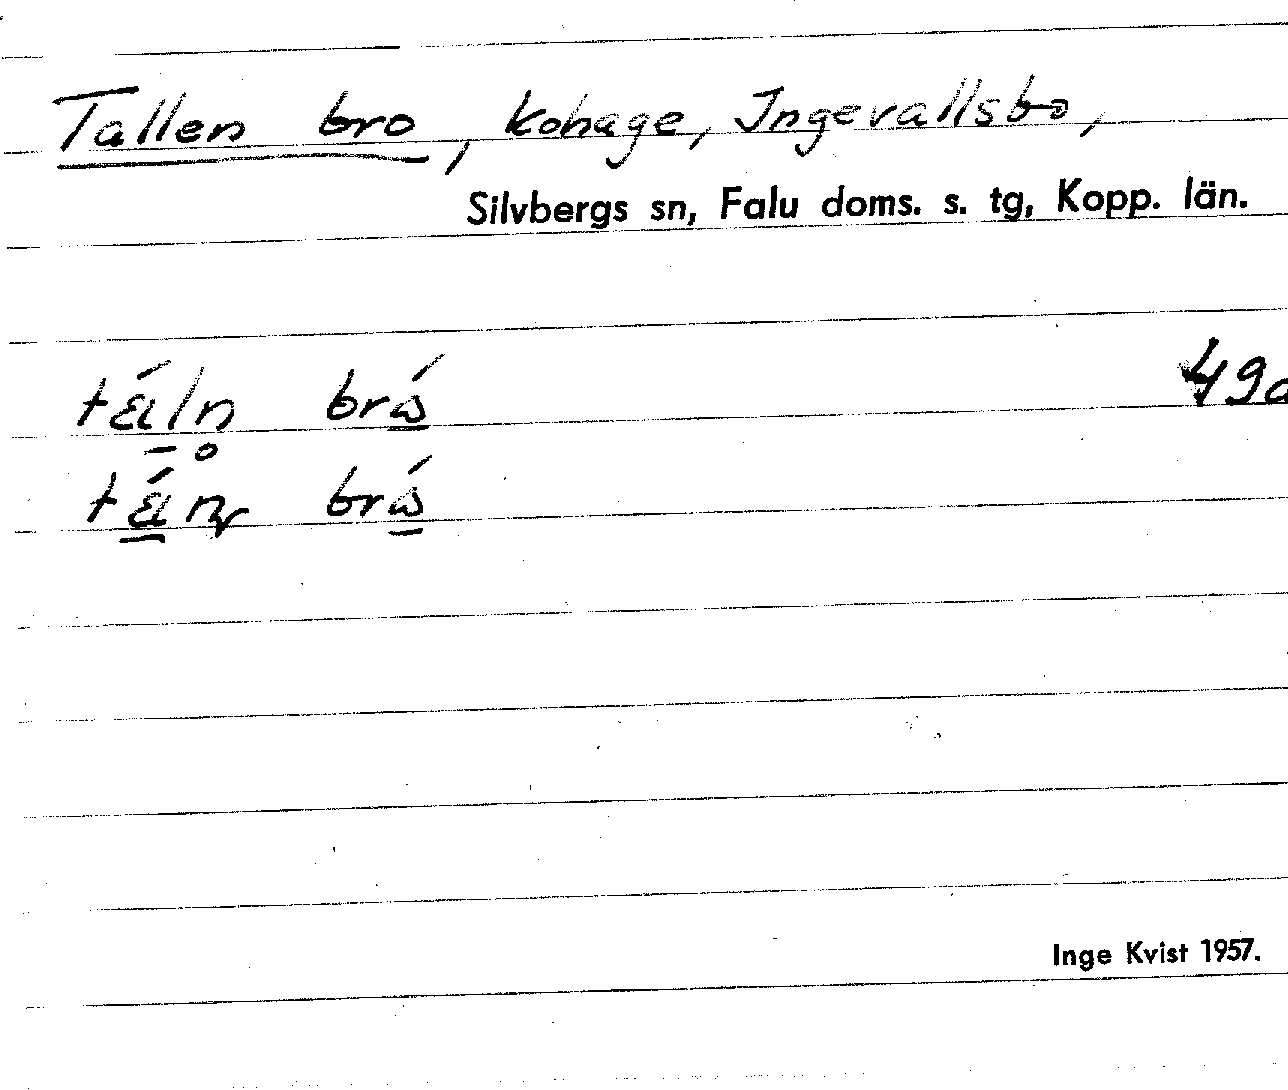 Tallen bro, kohage, Ingevallsbo,
Silvbergs sn, Falu doms. s. tg, Kopp. län.
49a
Inge Kvist 1957.